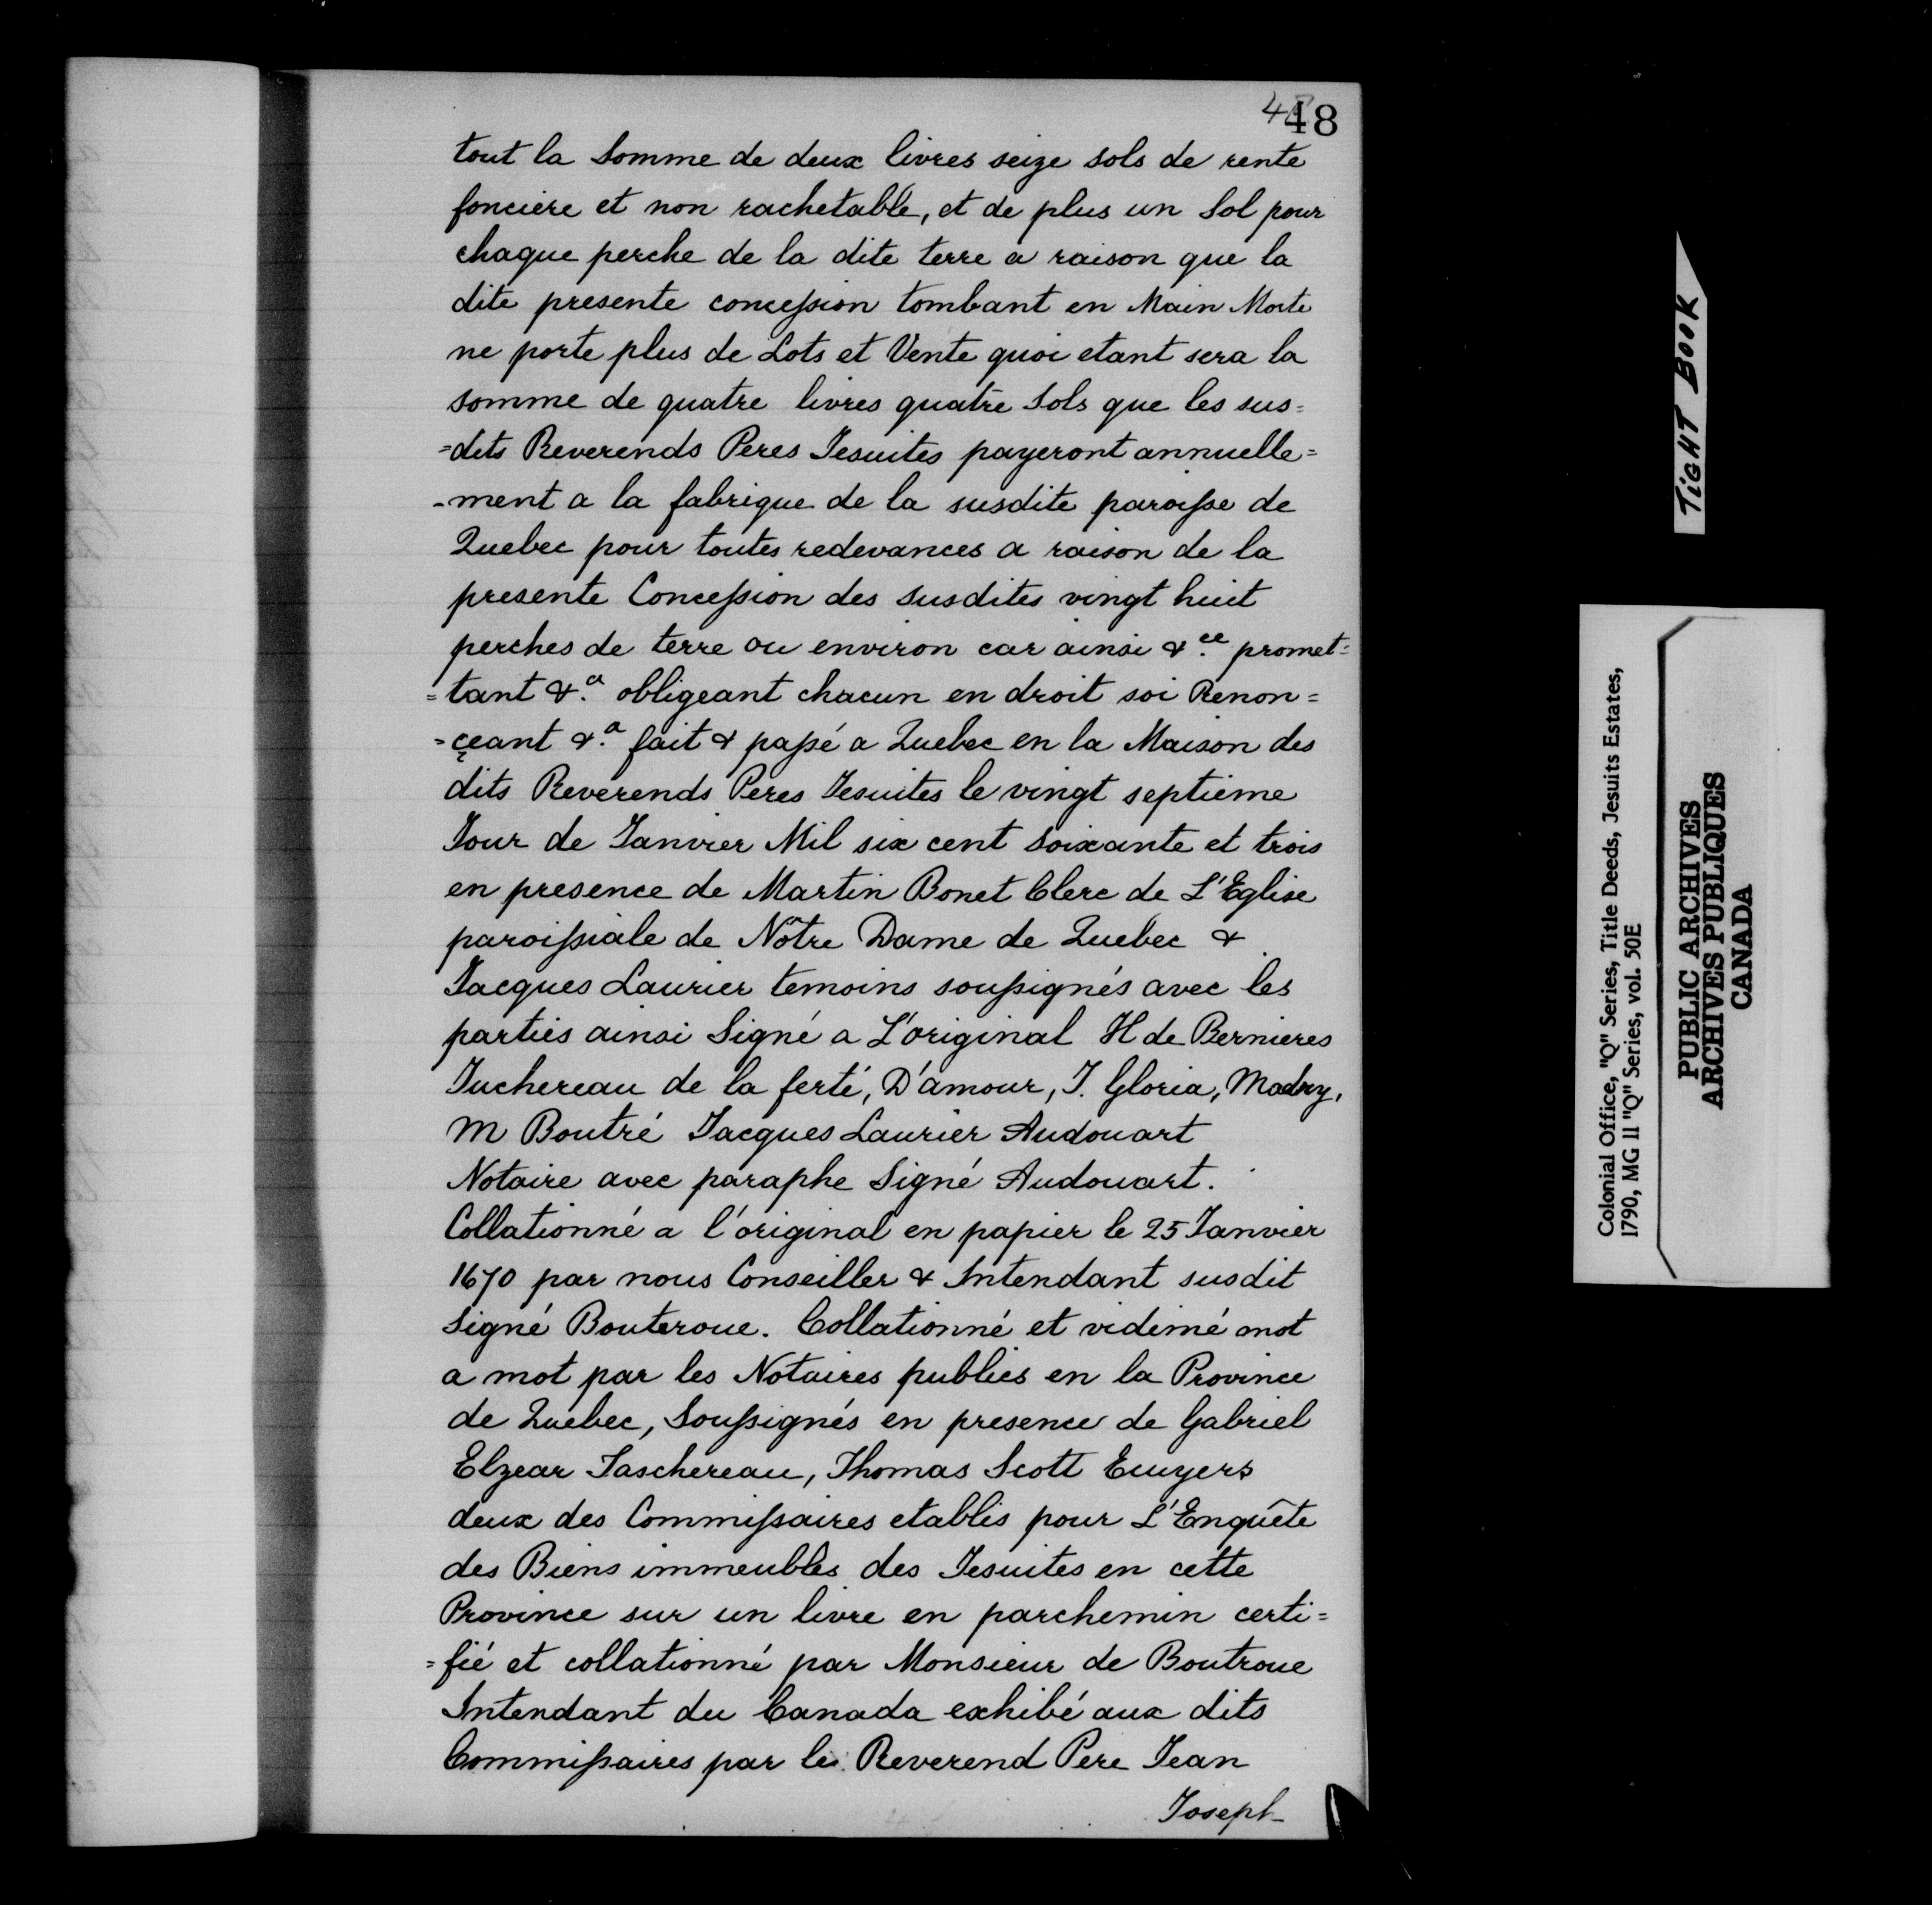 48
tout la Somme de deux livres seize sols de rente
fonciere et non rachetable, et de plus un Sol pour
chaque perche de la dite terre a raison que la
dite presente concession tombant en Main Morte
ne porte plus de Lots et Vente quoi etant sera la
somme de quatre livres quatre Sols que les sus=
=dits Reverends Peres Jesuites payeront annuelle=
-ment a la fabrique de la susdite paroisse de
Quebec pour toutes redevances a raison de la
presente Concession des susdites vingt huit
perches de terre ou environ car ainsi &.ce promet=
=tant &.a obligeant chacun en droit soi Renon=
=çeant &.a fait & passé a Quebec en la Maison des
dits Reverends Peres Jesuites le vingt septieme
Jour de Janvier Mil six cent Soixante et trois
en presence de Martin Bonet Clerc de L'Eglise
paroissiale de Nôtre Dame de Quebec &
Jacques Laurier temoins soussignés avec les
parties ainsi Signé a L'original H de Bernieres
Juchereau de la ferté, D'amour, J. Gloria, Madry,
M Boutré Jacques Laurier Audouart
Notaire avec paraphe Signé Audouart.
Collationné a l'original en papier le 25 Janvier
1670 par nous Conseiller & Intendant susdit
Signé Bouteroue. Collationné et vidimé mot
a mot par les Notaires publics en la Province
de Quebec, Soussignés en presence de Gabriel
Elzear Taschereau, Thomas Scott Ecuyers
deux des Commissaires etablis pour L'Enquête
des Biens immeubles des Jesuites en cette
Province sur un livre en parchemin certi=
=fié et collationné par Monsieur de Boutroue
Intendant du Canada exhibé aux dits
Commissaires par le Reverend Pere Jean
Joseph
TIGHT BOOK
Colonial Office, "Q" Series, Title Deeds, Jesuits Estates,
1790, MG 11 "Q" Series, vol. 50E
PUBLIC ARCHIVES
ARCHIVES PUBLIQUES
CANADA